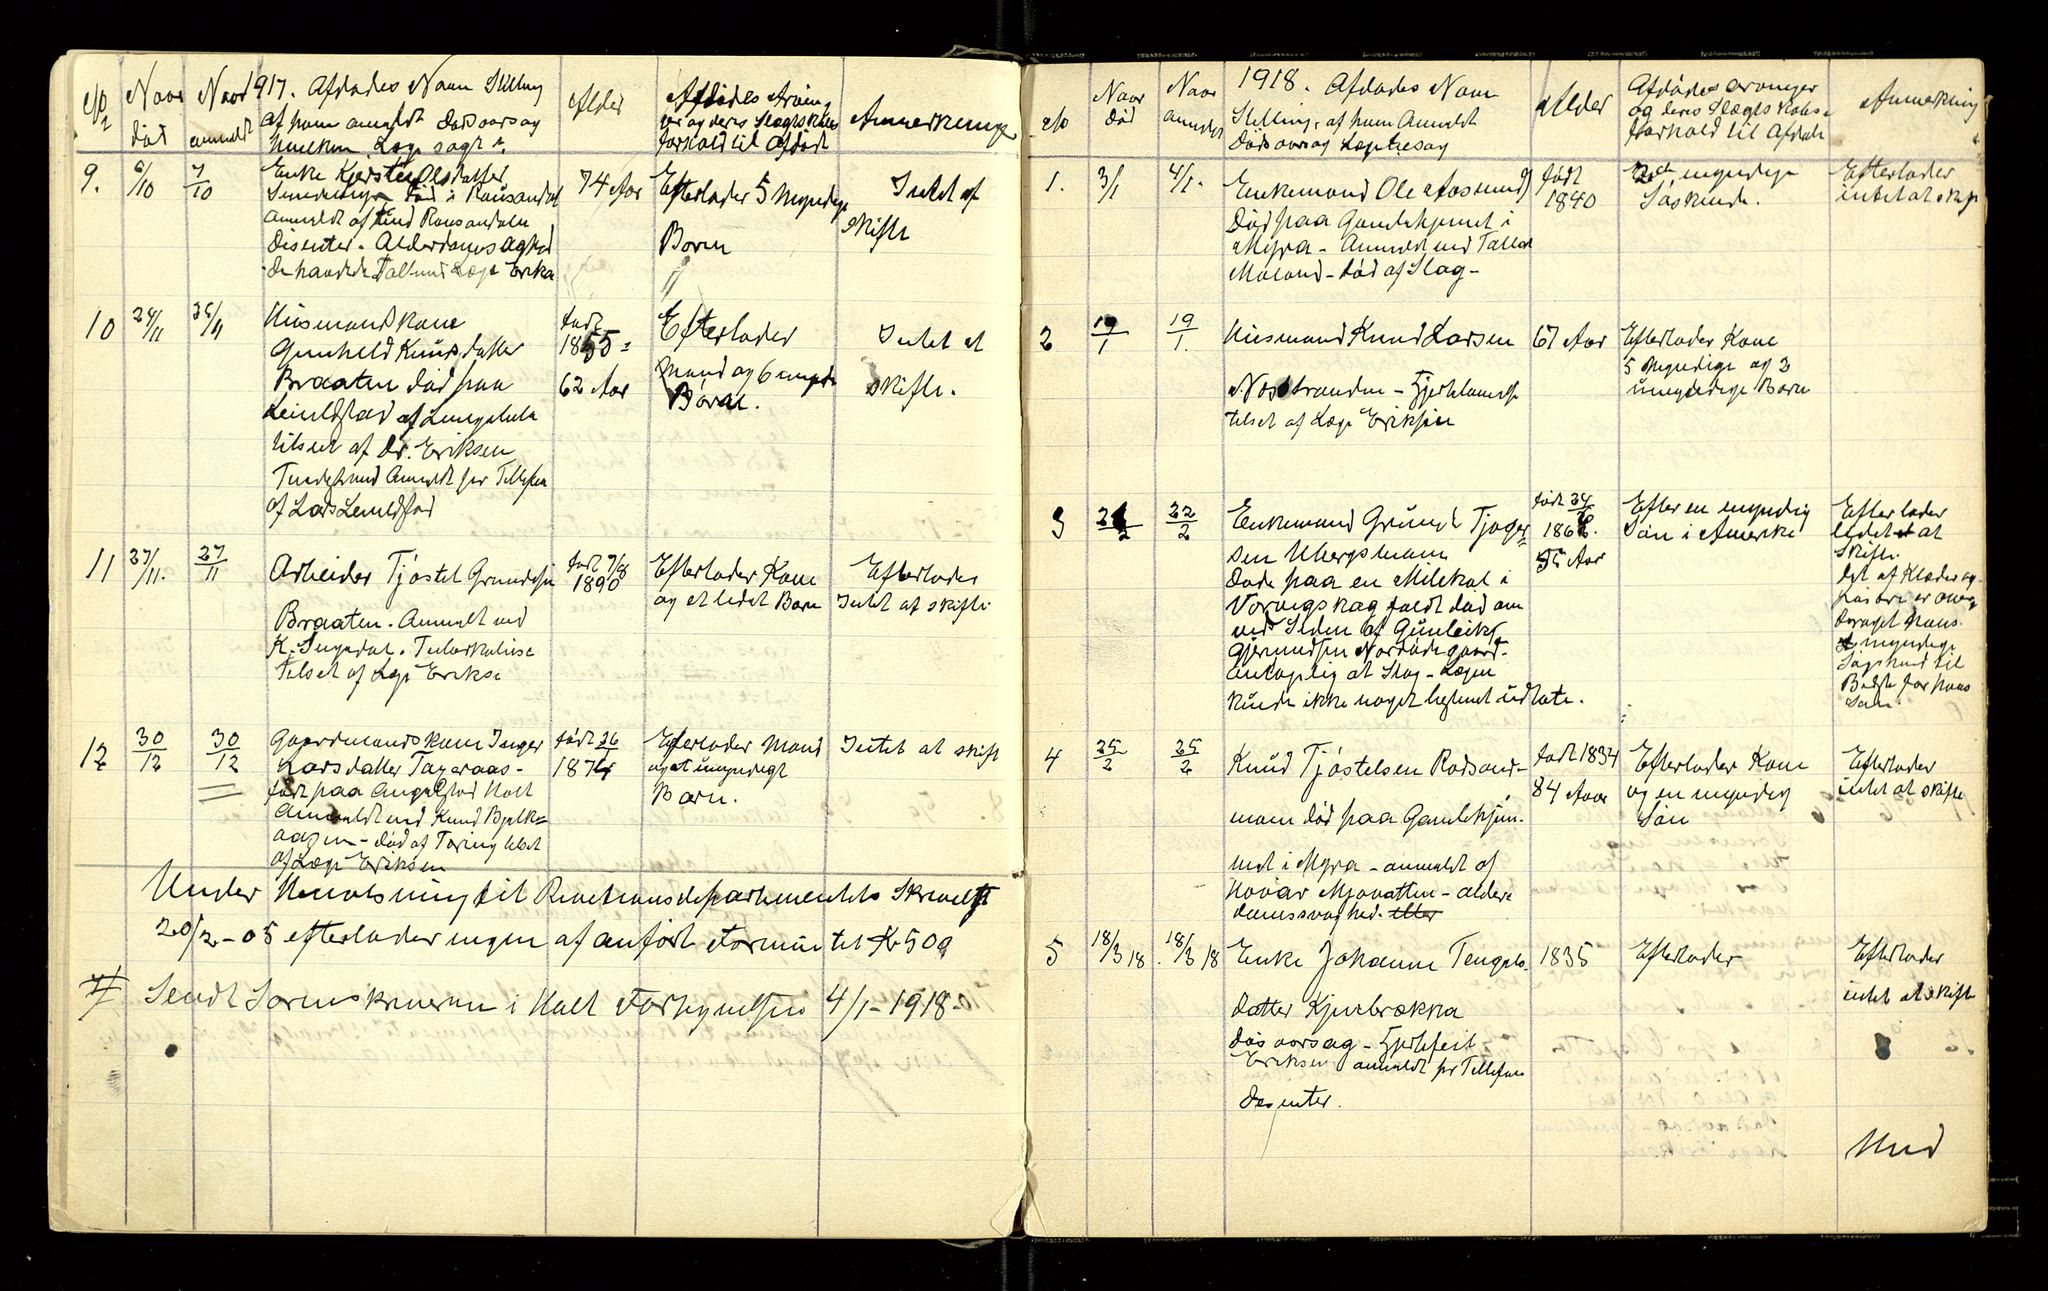 No
Naar
død
Naar
anmeldt
1917. Afdødes Navn Stilling
af hvem anmeldt Dødsaarsag
Alder
Afdødes Arving
er og deres Slægtskabs
forhold til Afdøde
Anmerkning
9.
6/10
7/10
Enke Kjersti Olsdatter
død i Rausandal
anmeldt af
Disenter. Alderdomssvaghed
74 Aar
Efterlader 5 Myndige
Børn
Intet at
skifte
10
24/11
25/11
Husmandskone
Gunhild Knudsdatter
Braaten død paa
af Lungebet
tilset af Dr. Eriksen
Anmeldt per Tellefon
af Lars
født
1855 =
62 Aar
Efterlader
Mand og 6 mynd
Børn.
Intet at
skifte.
11
27/11.
27/11
Arbeider Tjøstel Grundesen
Braaten. Anmelt ved
K. Ingedal. Tuberkulose
Tilset af Læge Erikse
født 7/8
1890
Efterlader Kone
og et lidet Barn
Efterlader
Intet at skifte
12
30/12
30/12
Gaardmandskone Inger
Larsdatter Tageraas-
født paa Angelstad Holt
Anmeldt ved Knud Bjelk=
aagen - død af Tæring tilset
af Læge Eriksen
født 26
1874
Efterlader Mand
og et umyndigt
Barn.
Intet at skift
Under Henvisning til Revetionsdepartementets Skrivelse
20/2-05 efterlader ingen af anført Formue til Kr 500
Sendt Sorenskriveren i Holt Forsyndsen 4/1-1918-
No
Naar
død
Naar
anmeldt
1918. Afdødes Navn
Stilling, af hvem Anmeldt
Dødsaarsag Lægtilsag
Alder
Afdødes arvinger
og deres Slægtskabs=
forhold til Afdøde
Anmerkning
1.
3/1
4/1.
Enkemand Ole Aasmund
Død paa Gamlehjemmet i
Myra - Anmeldt ved Tallak
Moland - død af Slag -
født
1840
2 myndige
Søskende.
Efterlader
intet at skifte
2
19/1
19/1.
Husmand Knud Larsen
Nesstranden - Hjertelammelse
tilset af Læge Eriksen
67 Aar
Efterlader Kone
5 myndige og 2
umyndige Børn
3
22/2
Enkemand Tjøger=
sen Ubergsmoen
Døde paa en Milekol i
Vorvigskag faldt død om
ved Siden af Gunleik
Gjermundsen Nordødegaard.
antagelig at Slag - Lægen
kunde ikke noget bestemt udtale.
født 24
55 Aar
Efter en myndig
Søn i Amerika
Efterlader
lidet at
Skifte.
Det af Klæder og
Løsøre er over
draget hans
myndige
Søskend til
Bedste for hans
Søn.
4
25/2
25/2
Knud Tjøstelsen Rødsand-
moen død paa Gamlehjem.
met i Myra - anmeldt af
Hovar Mjovatten - alder=
domssvaghed. eller
født 1834
84 Aar
Efterlader Kone
og en myndig
Søn
Efterlader
intet at skifte
5
18/3 18
18/3 18
Enke Johanne Tengels-
datter Kjenbrækka
Døsaarsag - Hjertefeil
Eriksen anmeldt per Tellefon
Desenter.
1835
Efterlader
Efterlader
intet at skifte